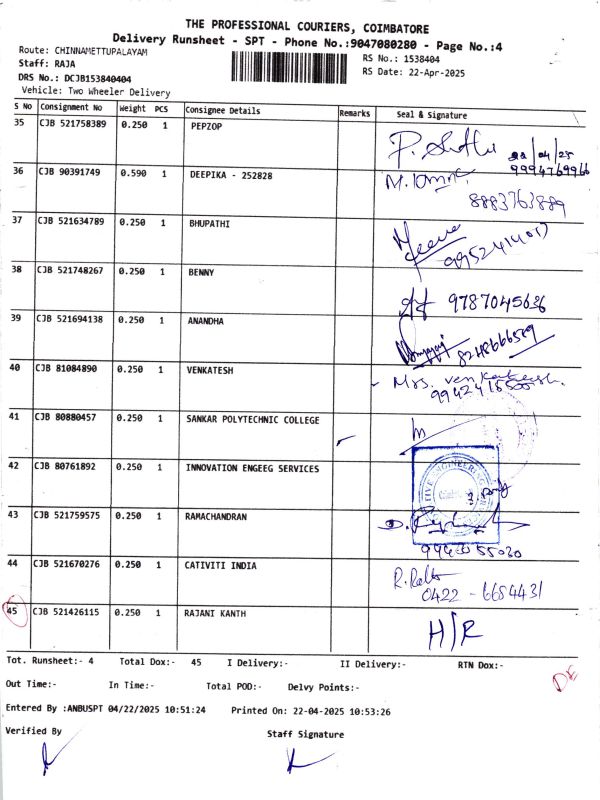 THE PROFESSIONAL COURIERS, COIMBATORE
Delivery Runsheet - SPT - Phone No.:9047080280 - Page No.:4
Route: CHINNAMETTUPALAYAM
RS No.: 1538404
Staff: RAJA
RS Date: 22-Apr-2025
DRS No.: DCJB153840404
Vehicle: Two Wheeler Delivery
S No Consignment No Weight PCS Consignee Details Remarks Seal & Signature
35 CJB 521758389 0.250 1 PEPZOP
22/04/25
9994769966
36 CJB 90391749 0.590 1 DEEPIKA - 252828
8883763889
37 CJB 521634789 0.250 1 BHUPATHI
38 CJB 521748267 0.250 1 BENNY
9787045636
39 CJB 521694138 0.250 1 ANANDHA
8248666589
40 CJB 81084890 0.250 1 VENKATESH
Mrs. Venkatesh.
41 CJB 80880457 0.250 1 SANKAR POLYTECHNIC COLLEGE
42 CJB 80761892 0.250 1 INNOVATION ENGEEG SERVICES
43 CJB 521759575 0.250 1 RAMACHANDRAN
44 CJB 521670276 0.250 1 CATIVITI INDIA
0422 - 6654431
45 CJB 521426115 0.250 1 RAJANI KANTH
H/R
Tot. Runsheet:- 4 Total Dox:- 45 I Delivery:- II Delivery:- RTN Dox:-
Out Time:- In Time:- Total POD:- Delvy Points:-
Entered By :ANBUSPT 04/22/2025 10:51:24 Printed On: 22-04-2025 10:53:26
Verified By Staff Signature